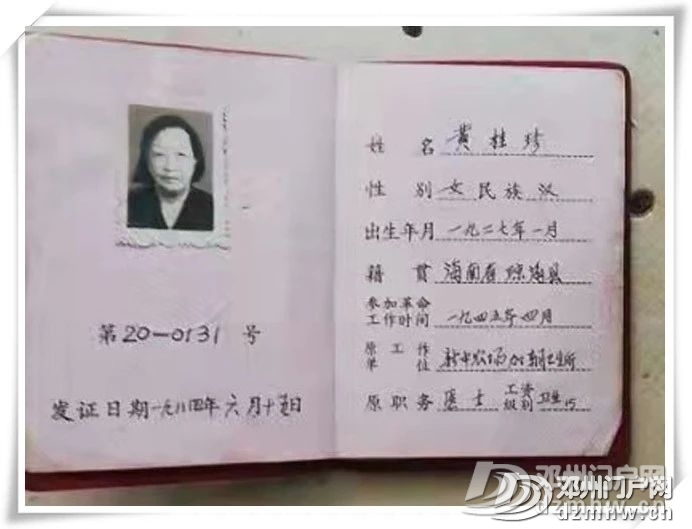 第20-0131号
发证日期一九八四年六月十五日
姓名 黄桂珍
性别 女 民族 汉
出生年月 一九二七年一月
籍贯 海南省琼海县
参加革命工作时间 一九四五年四月
原工作单位 新中农场加辅卫生所
原职务 医士 工资级别 卫生15
邓州门户网
邓州门户网
dzmhw.cn